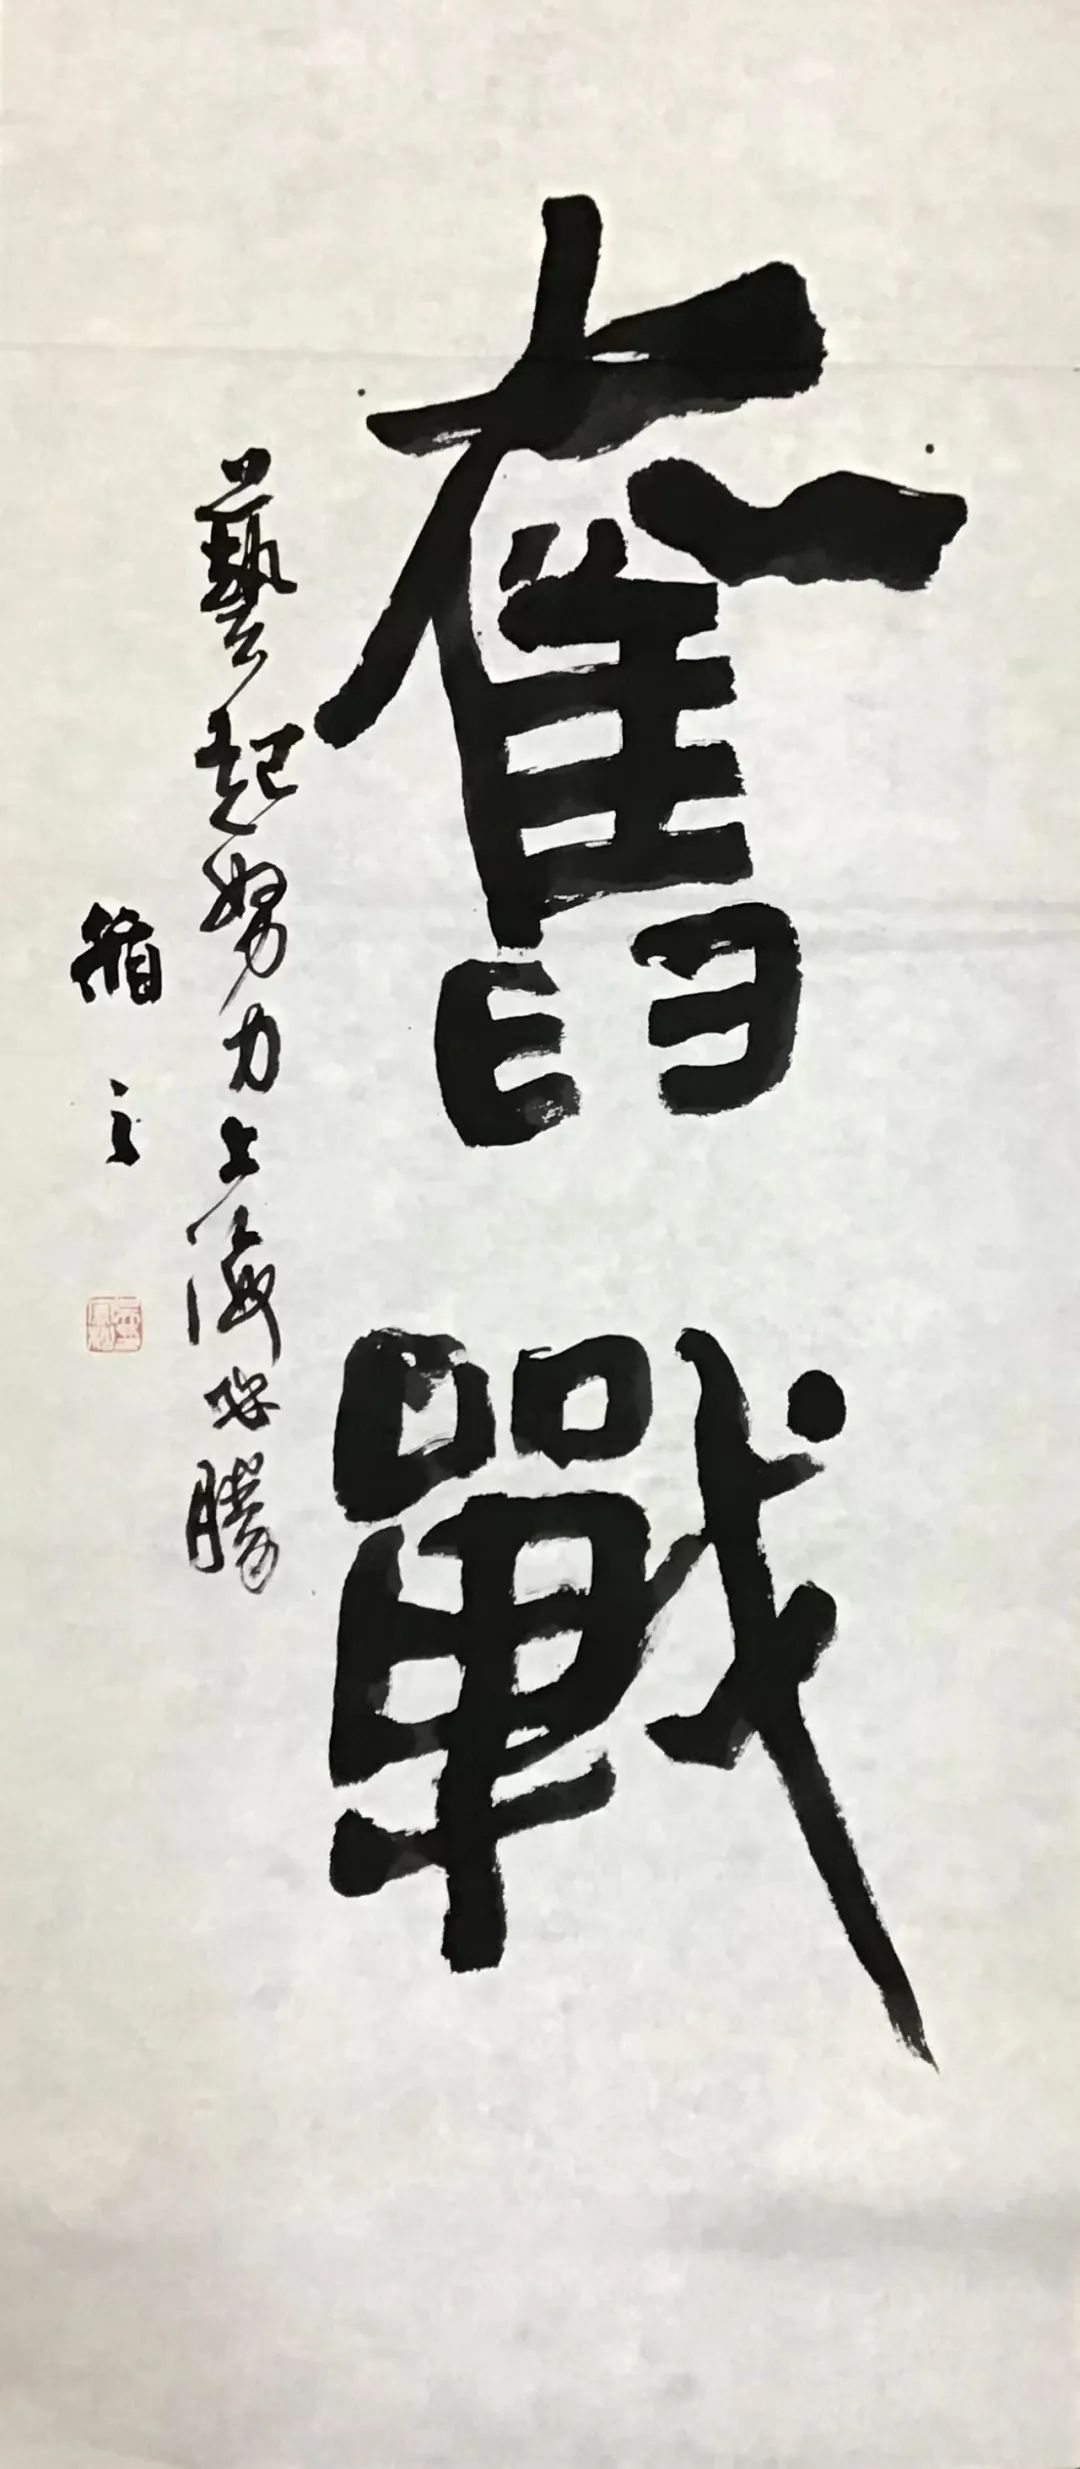 奮戰
藝起努力上海必勝